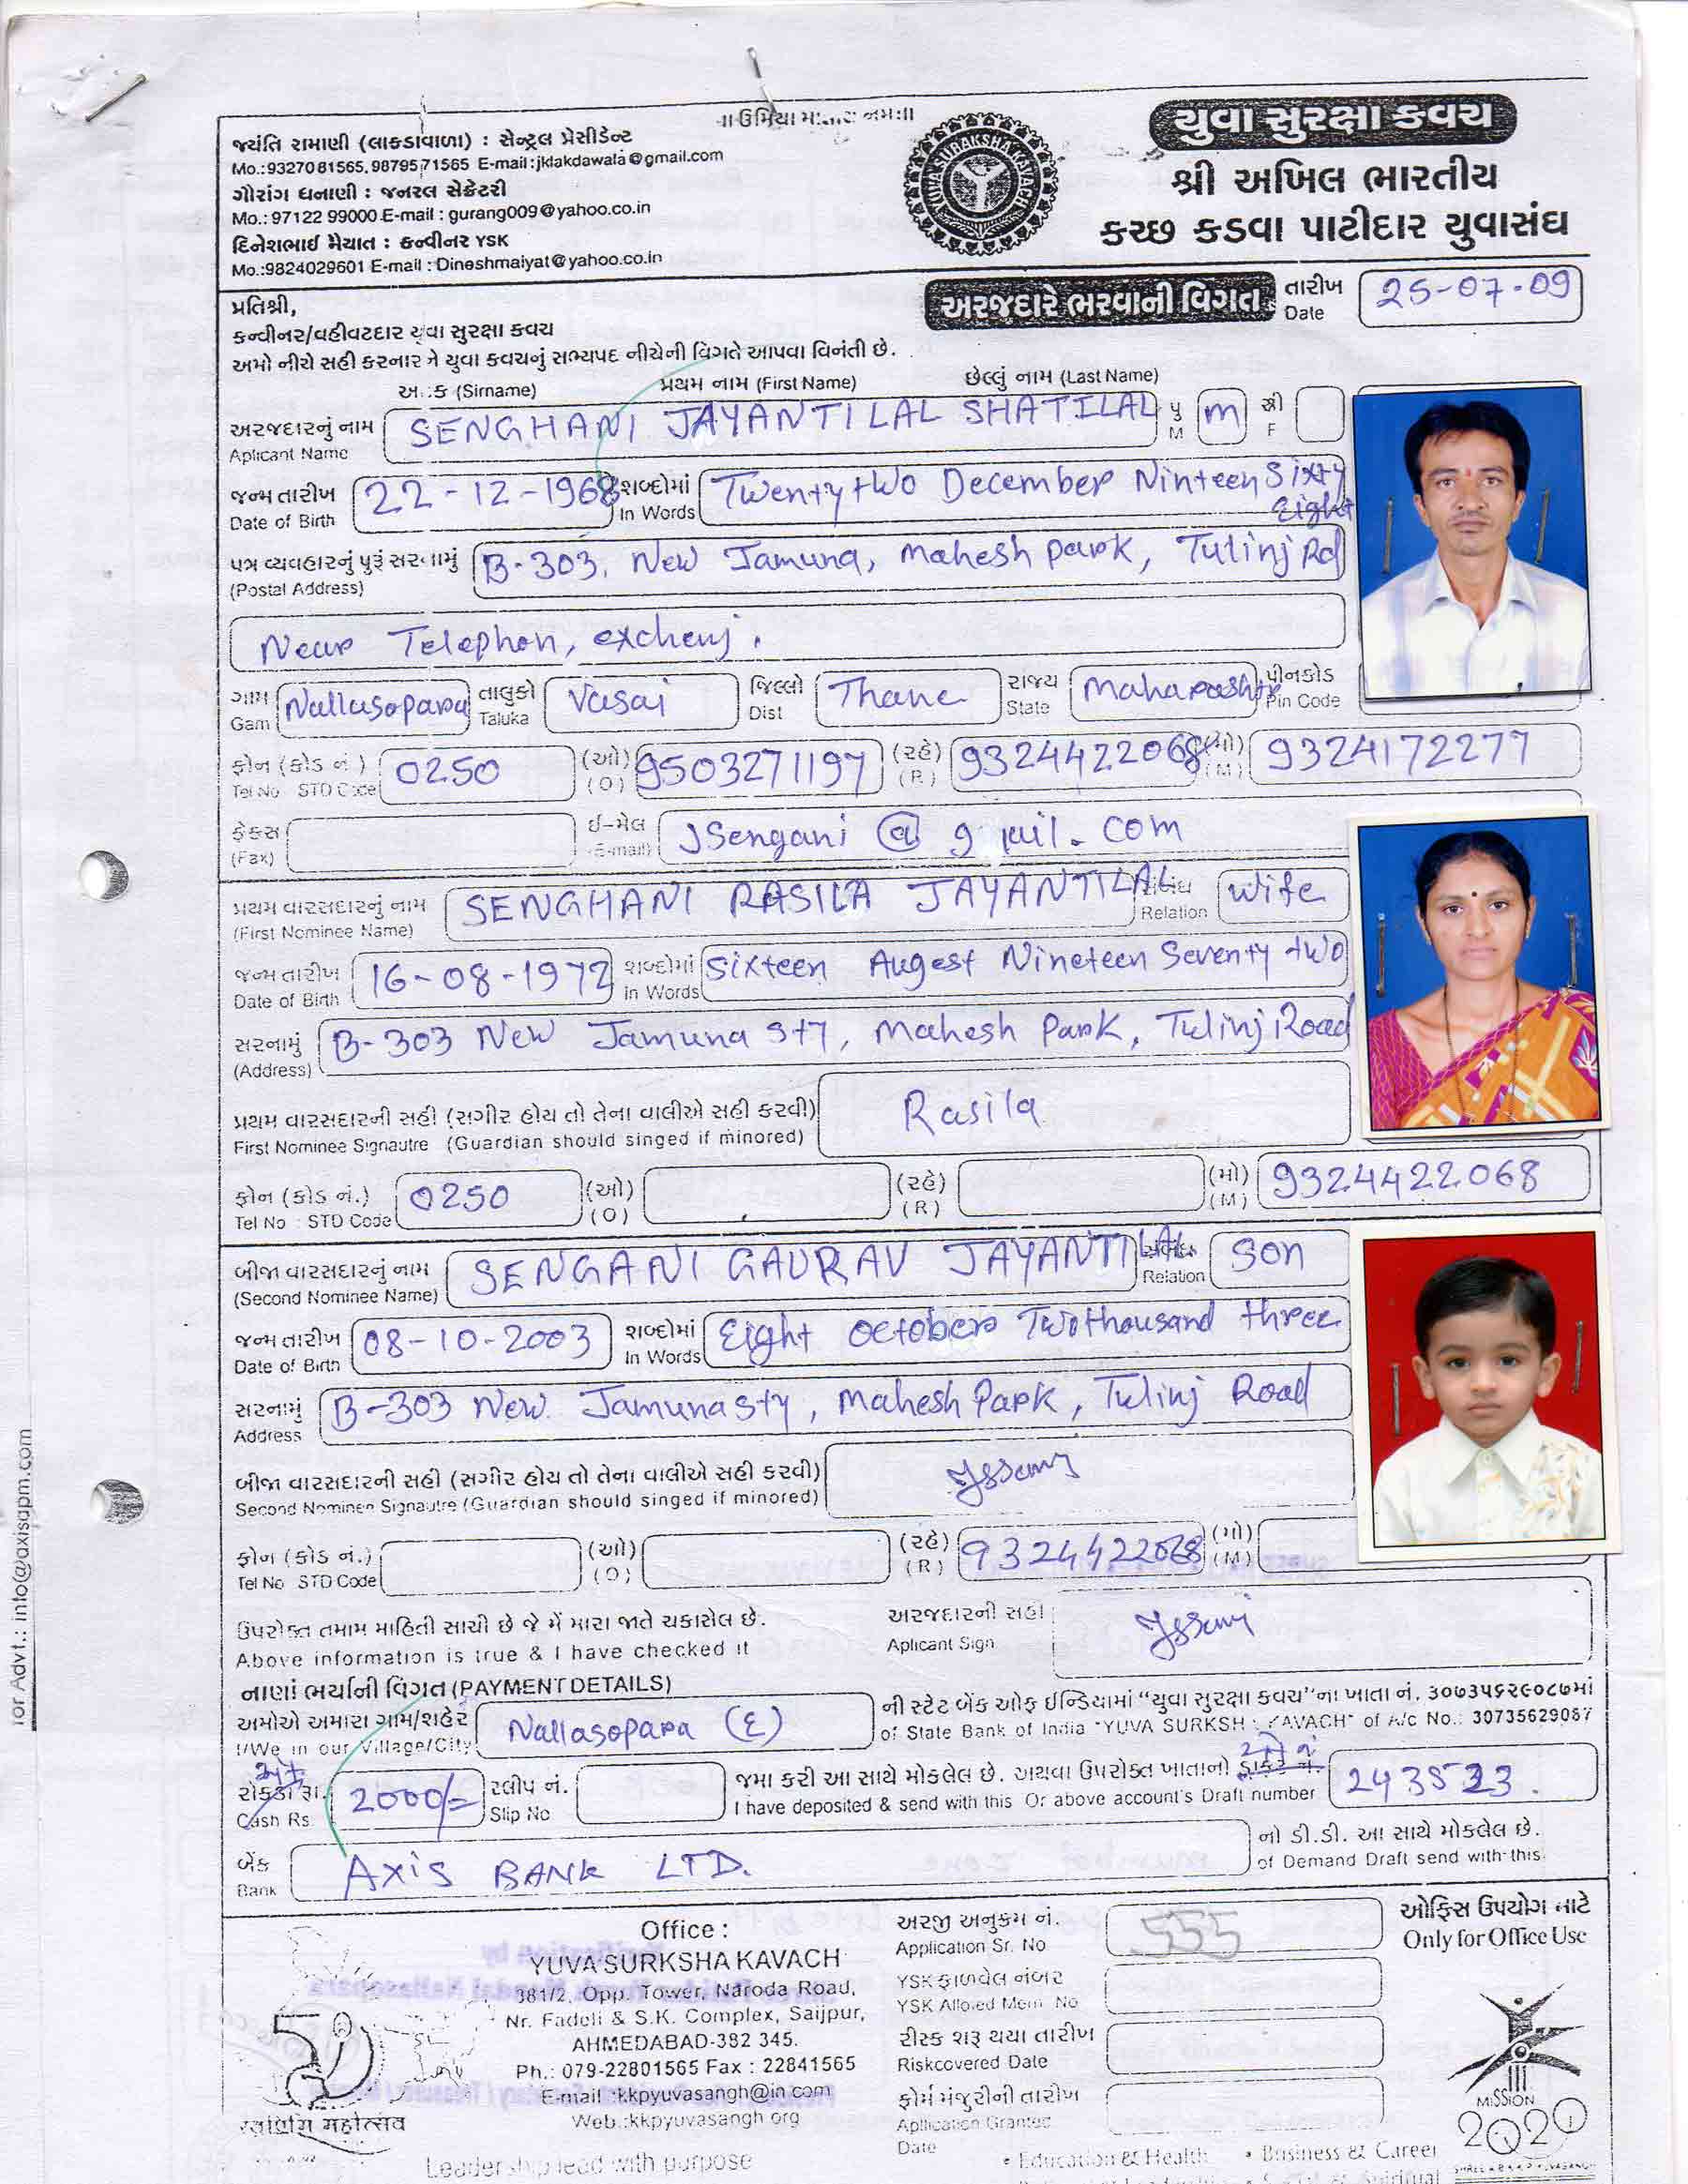 યુવા સુરક્ષા કવચ
શ્રી અખિલ ભારતીય
કચ્છ કડવા પાટીદાર યુવાસંઘ
YUVA SURAKSHA KAVACH
જયંતિ રામાણી (લાકડાવાળા) : સેન્ટ્રલ પ્રેસીડેન્ટ
Mo.:9327081565, 9879571565 E-mail:jklakdawala@gmail.com
ગૌરાંગ ધનાણી : જનરલ સેક્રેટરી
Mo.: 97122 99000 E-mail : gurang009@yahoo.co.in
દિનેશભાઈ મૈયાત : કન્વીનર YSK
Mo.:9824029601 E-mail : Dineshmaiyat@yahoo.co.in
અરજદારે ભરવાની વિગત
તારીખ Date 25-07-09
પ્રતિશ્રી,
કન્વીનર/વહીવટદાર યુવા સુરક્ષા કવચ
અમો નીચે સહી કરનાર ને યુવા કવચનું સભ્યપદ નીચેની વિગતે આપવા વિનંતી છે.
(Sirname) પ્રથમ નામ (First Name) છેલ્લું નામ (Last Name)
અરજદારનું નામ Aplicant Name SENGHANI JAYANTILAL SHATILAL પુ M m સ્ત્રી F
જન્મ તારીખ Date of Birth 22-12-1968 શબ્દોમાં In Words Twenty two December Ninteen Sixty Eight
પત્ર વ્યવહારનું પુરૂં સરનામું (Postal Address) B-303, New Jamuna, Mahesh park, Tulinj Rd
Near Telephon, exchenj.
ગામ Gam Nallasopara તાલુકો Taluka Vasai જિલ્લો Dist Thane રાજ્ય State Maharashtr પીનકોડ Pin Code
ફોન (કોડ નં.) Tel No STD Code 0250 (ઓ) (O) 9503271197 (રહે) (R) 9324422068 (મો) (M) 9324172277
ફેક્સ (Fax) ઈ-મેલ (E-mail) JSengani @
com
પ્રથમ વારસદારનું નામ (First Nominee Name) SENGHANI RASILA JAYANTILAL Relation wife
જન્મ તારીખ Date of Birth 16-08-1972 શબ્દોમાં in Words Sixteen Augest Nineteen Seventy two
સરનામું (Address) B-303 New Jamuna sty, Mahesh Park, Tulinj Road
પ્રથમ વારસદારની સહી (સગીર હોય તો તેના વાલીએ સહી કરવી) Rasila
First Nominee Signautre (Guardian should singed if minored)
ફોન (કોડ નં.) Tel No : STD Code 0250 (ઓ) (O) (રહે) (R) (મો) (M) 9324422068
બીજા વારસદારનું નામ (Second Nominee Name) SENGANI GAURAV JAYANTILAL Relation son
જન્મ તારીખ Date of Birth 08-10-2003 શબ્દોમાં In Words Eight October Twothousand three
સરનામું Address B-303 New Jamuna sty, Mahesh Park, Tulinj Road
બીજા વારસદારની સહી (સગીર હોય તો તેના વાલીએ સહી કરવી)
Second Nominee Signautre (Guardian should singed if minored)
ફોન (કોડ નં.) Tel No STD Code (ઓ) (O) (રહે) (R) 9324422068 (મો) (M)
ઉપરોક્ત તમામ માહિતી સાચી છે જે મેં મારા જાતે ચકાસેલ છે. અરજદારની સહી
Above information is true & I have checked it Aplicant Sign
નાણાં ભર્યાની વિગત (PAYMENT DETAILS)
અમોએ અમારા ગામ/શહેર Nallasopara (E) ની સ્ટેટ બેંક ઓફ ઈન્ડિયામાં "યુવા સુરક્ષા કવચ"ના ખાતા નં. ૩૦૭૩૫૬૨૯૦૮૭માં
I/We in our Village/City of State Bank of India "YUVA SURKSHA KAVACH" of A/c No.: 30735629087
રોકડા રૂા. Cash Rs. 2000/= સ્લીપ નં. Slip No જમા કરી આ સાથે મોકલેલ છે. અથવા ઉપરોક્ત ખાતાનો ડ્રાફ્ટ નં. 243523.
I have deposited & send with this Or above account's Draft number
બેંક Bank AXIS BANK LTD. નો ડી.ડી. આ સાથે મોકલેલ છે.
of Demand Draft send with this
Office :
YUVA SURKSHA KAVACH
381/2, Opp. Tower, Naroda Road,
Nr. Fadeli & S.K. Complex, Saijpur,
AHMEDABAD-382 345.
Ph.: 079-22801565 Fax : 22841565
E-mail :kkpyuvasangh@in.com
Web.:kkpyuvasangh.org
અરજી અનુક્રમ નં. Application Sr. No 555
YSK ફાળવેલ નંબર YSK Alloied Mem No
રીસ્ક શરૂ થયા તારીખ Riskcovered Date
ફોર્મ મંજુરીની તારીખ Apllication Granted Date
ઓફિસ ઉપયોગ માટે
Only for Office Use
MISSION
2020
મહોત્સવ
Leadership lead with purpose
• Education & Health • Business & Career
for Advt.: info@axisapm.com